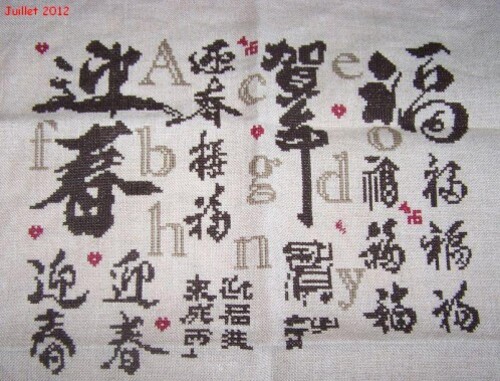 Juillet 2012
迎春
A
迎春接福
c
賀年
e
福
f
b
g
d
o
福
福
h
n
y
福
福
福
福
迎春
迎春